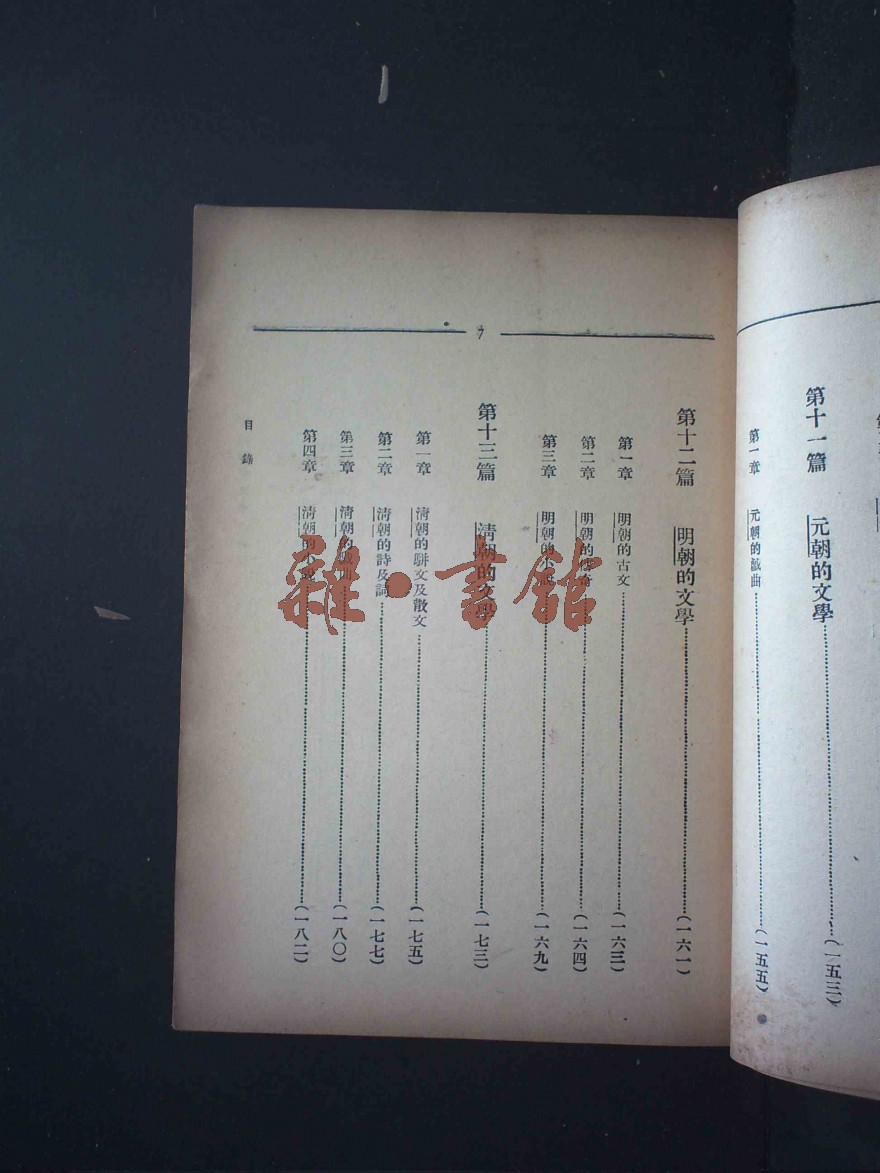 第十一篇 元朝的文學……(一五三)
第一章 元朝的戲曲……(一五五)
7
第十二篇 明朝的文學……(一六一)
第一章 明朝的古文……(一六三)
第二章 明朝的傳奇……(一六四)
第三章 明朝的小說……(一六九)
第十三篇 清朝的文學……(一七三)
第一章 清朝的駢文及散文……(一七五)
第二章 清朝的詩及詞……(一七七)
第三章 清朝的戲曲……(一八〇)
第四章 清朝的小說……(一八二)
目錄
雜·書館